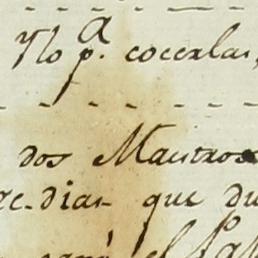 Ylo p.ª cocerlas,
dos Maestros
ze dias que du
el